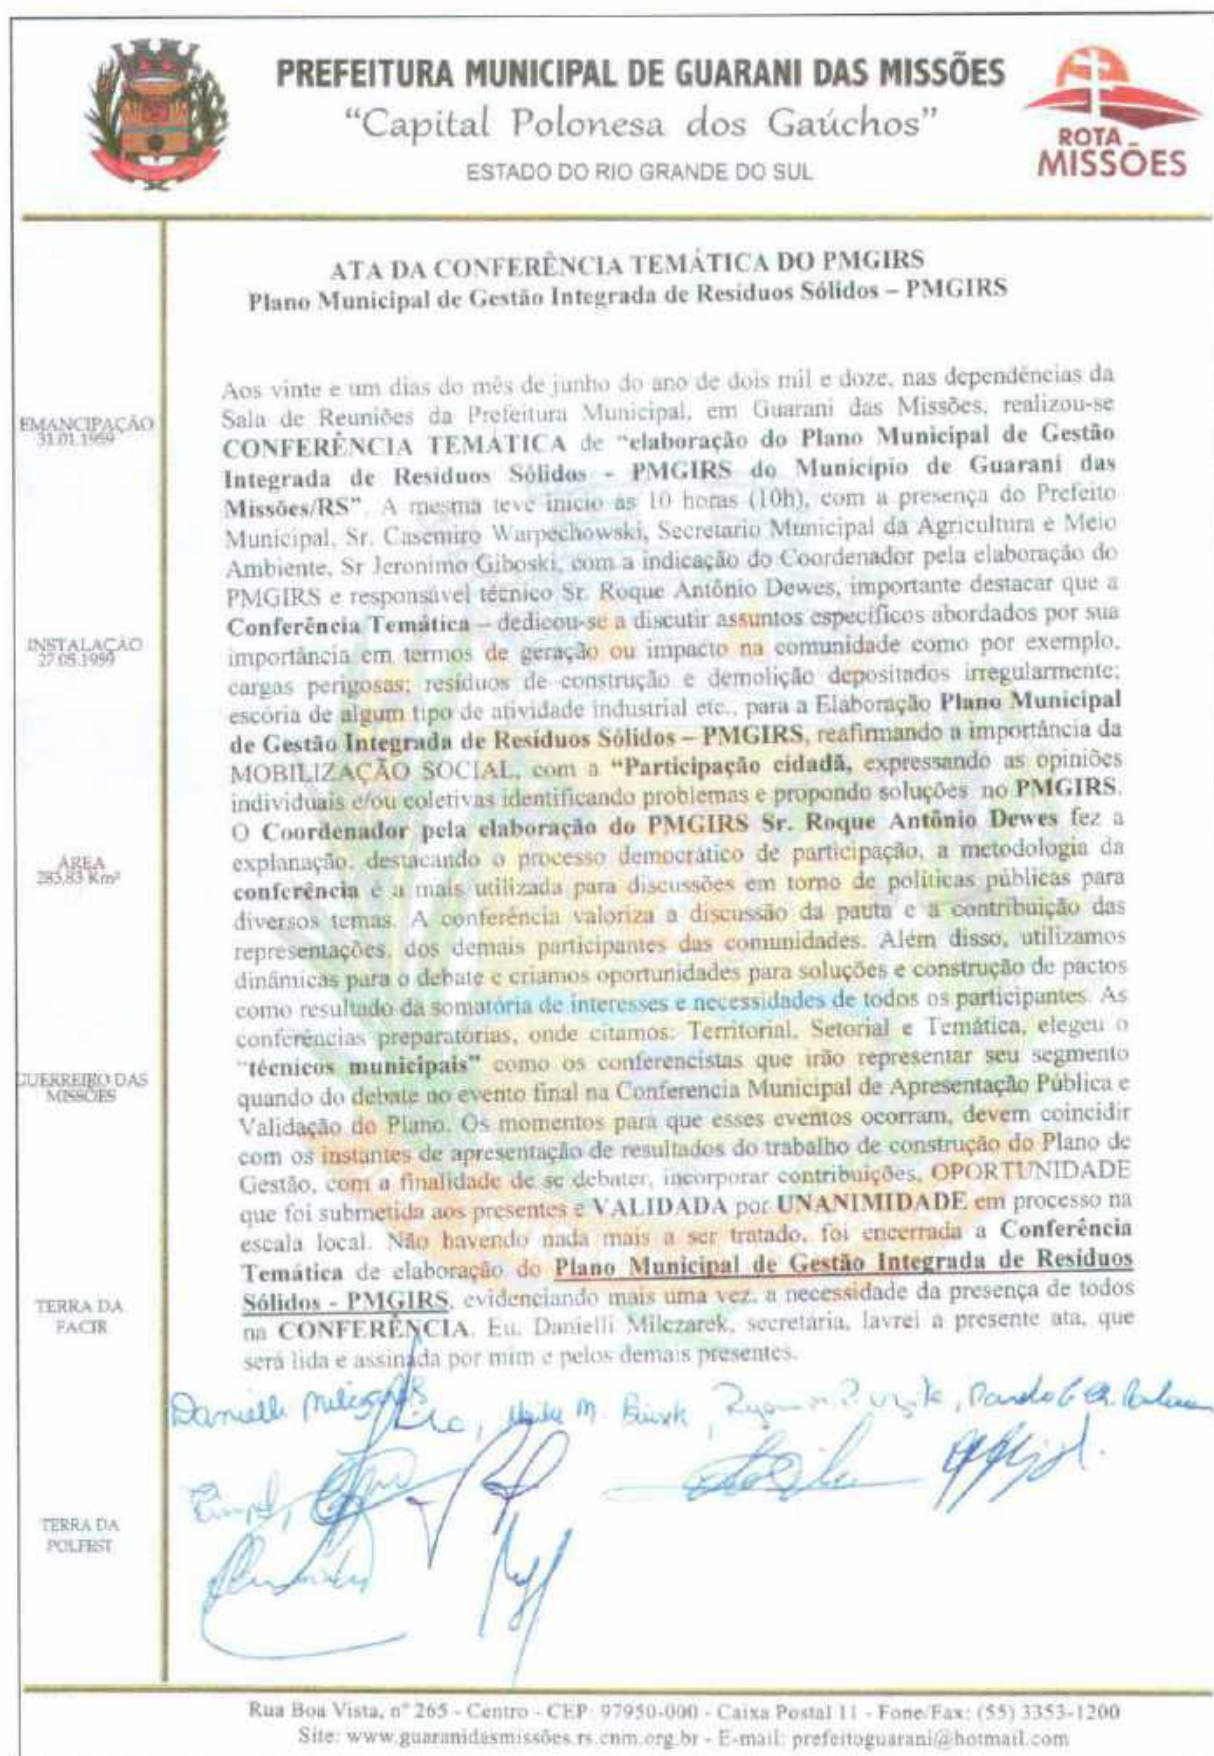 PREFEITURA MUNICIPAL DE GUARANI DAS MISSÕES
“Capital Polonesa dos Gaúchos”
ESTADO DO RIO GRANDE DO SUL
ROTA
MISSÕES
ATA DA CONFERÊNCIA TEMÁTICA DO PMGIRS
Plano Municipal de Gestão Integrada de Resíduos Sólidos – PMGIRS
EMANCIPAÇÃO
31.01.1959
INSTALAÇÃO
27.05.1959
ÁREA
283,83 Km²
GUERREIRO DAS
MISSÕES
TERRA DA
FACIR
TERRA DA
POLFEST
Aos vinte e um dias do mês de junho do ano de dois mil e doze, nas dependências da
Sala de Reuniões da Prefeitura Municipal, em Guarani das Missões, realizou-se
CONFERÊNCIA TEMÁTICA de “elaboração do Plano Municipal de Gestão
Integrada de Resíduos Sólidos - PMGIRS do Município de Guarani das
Missões/RS”. A mesma teve início às 10 horas (10h), com a presença do Prefeito
Municipal, Sr. Casemiro Warpechowski, Secretario Municipal da Agricultura e Meio
Ambiente, Sr Jeronimo Giboski, com a indicação do Coordenador pela elaboração do
PMGIRS e responsável técnico Sr. Roque Antônio Dewes, importante destacar que a
Conferência Temática – dedicou-se a discutir assuntos específicos abordados por sua
importância em termos de geração ou impacto na comunidade como por exemplo,
cargas perigosas; resíduos de construção e demolição depositados irregularmente;
escória de algum tipo de atividade industrial etc., para a Elaboração Plano Municipal
de Gestão Integrada de Resíduos Sólidos – PMGIRS, reafirmando a importância da
MOBILIZAÇÃO SOCIAL, com a “Participação cidadã, expressando as opiniões
individuais e/ou coletivas identificando problemas e propondo soluções no PMGIRS.
O Coordenador pela elaboração do PMGIRS Sr. Roque Antônio Dewes fez a
explanação, destacando o processo democrático de participação, a metodologia da
conferência é a mais utilizada para discussões em torno de políticas públicas para
diversos temas. A conferência valoriza a discussão da pauta e a contribuição das
representações, dos demais participantes das comunidades. Além disso, utilizamos
dinâmicas para o debate e criamos oportunidades para soluções e construção de pactos
como resultado da somatória de interesses e necessidades de todos os participantes. As
conferências preparatórias, onde citamos: Territorial, Setorial e Temática, elegeu o
“técnicos municipais” como os conferencistas que irão representar seu segmento
quando do debate no evento final na Conferencia Municipal de Apresentação Pública e
Validação do Plano. Os momentos para que esses eventos ocorram, devem coincidir
com os instantes de apresentação de resultados do trabalho de construção do Plano de
Gestão, com a finalidade de se debater, incorporar contribuições, OPORTUNIDADE
que foi submetida aos presentes e VALIDADA por UNANIMIDADE em processo na
escala local. Não havendo nada mais a ser tratado, foi encerrada a Conferência
Temática de elaboração do Plano Municipal de Gestão Integrada de Resíduos
Sólidos - PMGIRS, evidenciando mais uma vez, a necessidade da presença de todos
na CONFERÊNCIA. Eu, Danielli Milczarek, secretária, lavrei a presente ata, que
será lida e assinada por mim e pelos demais presentes.
Danielli Milczarek
Rua Boa Vista, nº 265 - Centro - CEP: 97950-000 - Caixa Postal 11 - Fone/Fax: (55) 3353-1200
Site: www.guaranidasmissões.rs.cnm.org.br - E-mail: prefeitoguarani@hotmail.com